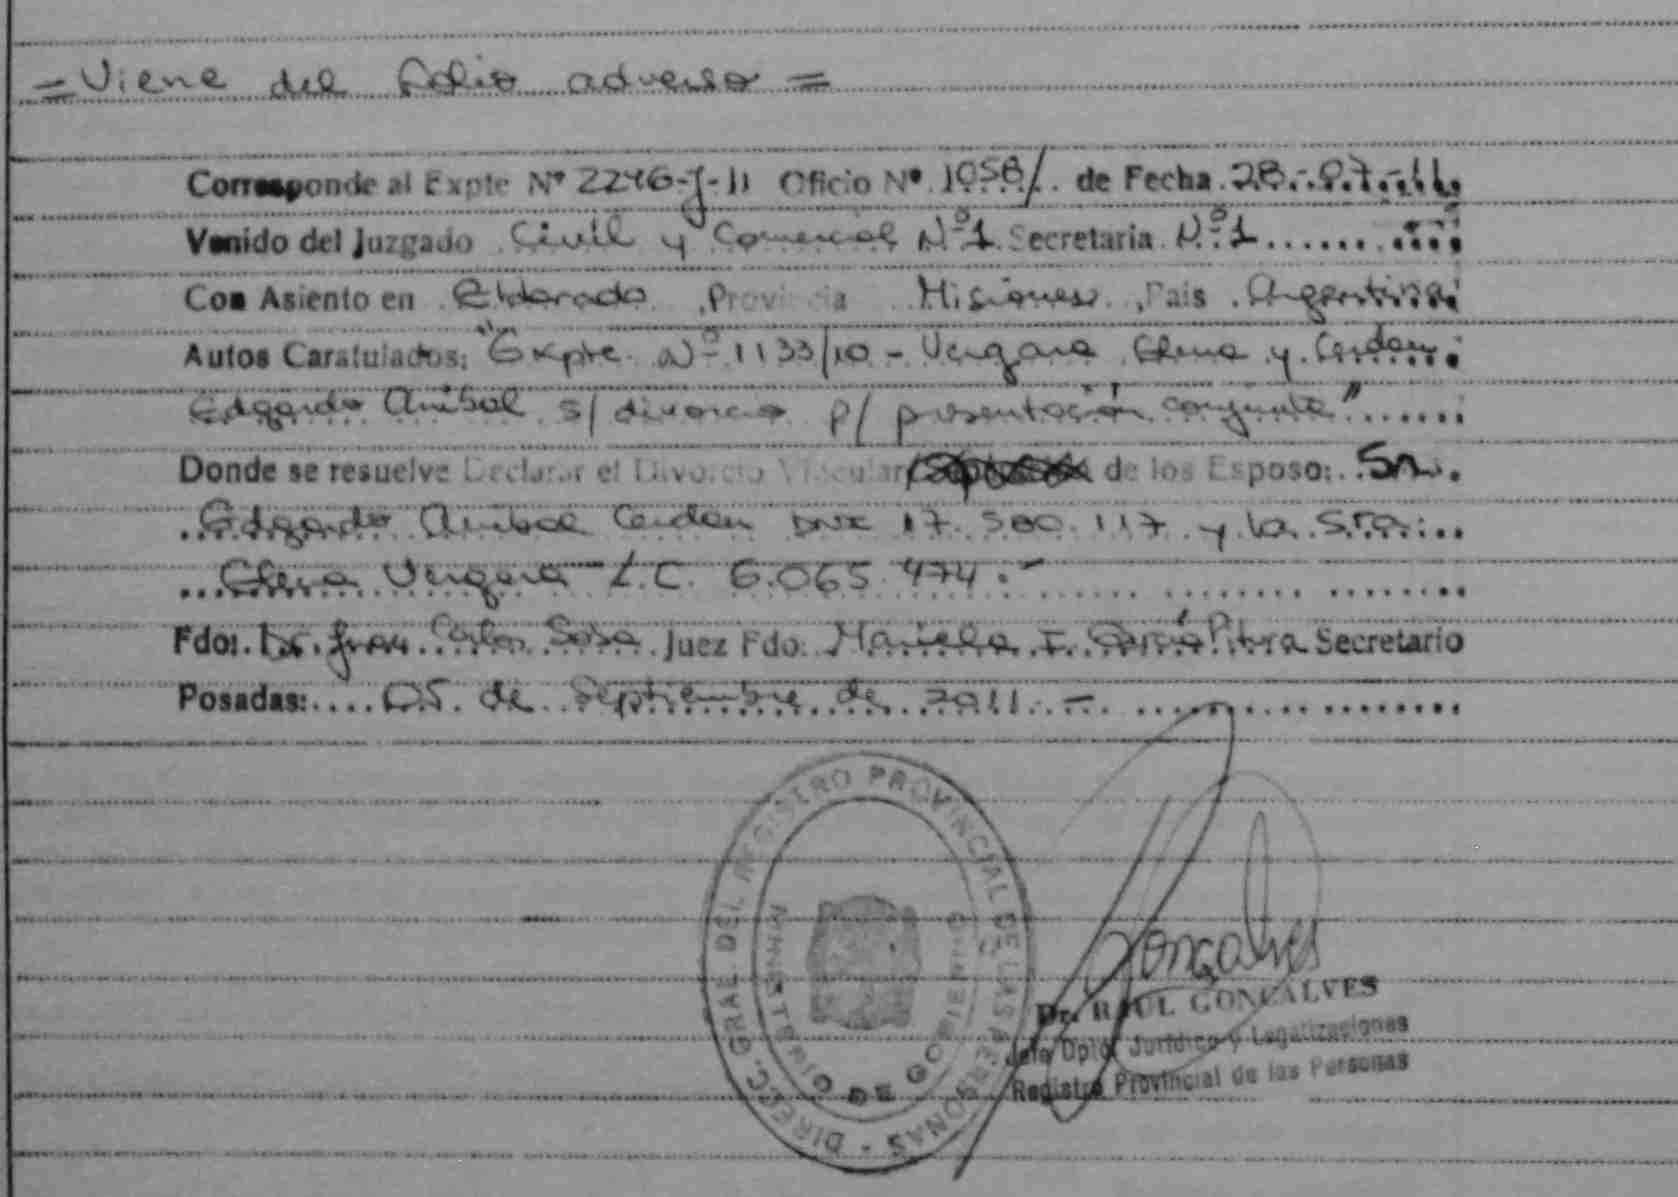 = Viene del folio adverso =
Corresponde al Expte Nº 2246-J-11 Oficio Nº 1058/ de Fecha 28-07-11
Venido del Juzgado Civil y Comercial Nº 1 Secretaria Nº 1
Con Asiento en Eldorado, Provincia Misiones, Pais Argentina
Autos Caratulados: "Expte. Nº 1133/10 - Vergara Elena y Cerdan
Edgardo Anibal s/ divorcio p/ presentación conjunta"
Donde se resuelve Declarar el Divorcio Vincular de los Esposo: Sr.
Edgardo Anibal Cerdan DNI 17.580.117 y la Sra:
Elena Vergara L.C. 6.065.474.-
Fdo: Dr. Juan Carlos Sosa Juez Fdo: Mariela I. García Secretario
Posadas: 05 de Septiembre de 2011.-
DIRECC. GRAL. DEL REGISTRO PROVINCIAL DE LAS PERSONAS -
MINISTERIO DE GOBIERNO
Gonçalves
Dr. RAUL GONCALVES
Jefe Dpto. Jurídico y Legalizaciones
Registro Provincial de las Personas